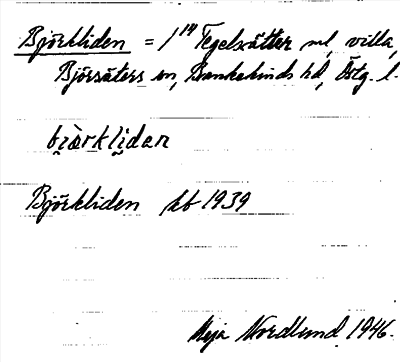 Björkliden = 1/14 Tegelsätter nl, villa,
Björsäters sn, Bankekinds hd, Östg. l.
bjàrklidan
Björkliden kb 1939
Maja Nordlund 1946.